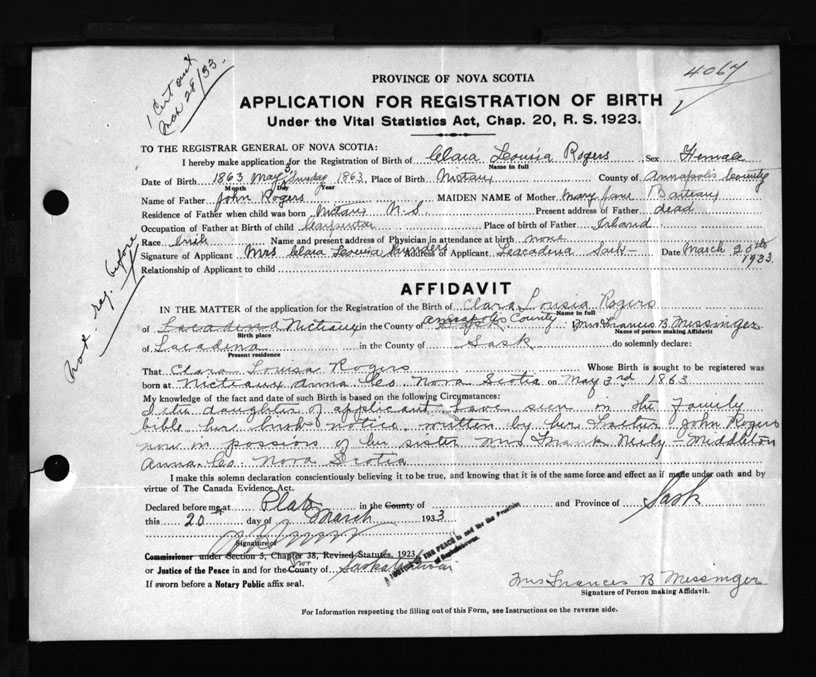 1 Cert out
Mch 28/33.
4067
PROVINCE OF NOVA SCOTIA
APPLICATION FOR REGISTRATION OF BIRTH
Under the Vital Statistics Act, Chap. 20, R. S. 1923.
TO THE REGISTRAR GENERAL OF NOVA SCOTIA:
I hereby make application for the Registration of Birth of Clara Louisa Rogers Sex Female
Name in full
Date of Birth 1863 May 3 Sunday 1863, Place of Birth Nictaux County of Annapolis County
Month Day Year
Name of Father John Rogers MAIDEN NAME of Mother Mary Jane Batteaux
Residence of Father when child was born Nictaux N.S. Present address of Father dead
Occupation of Father at Birth of child Carpenter Place of birth of Father Irland
Race Irish Name and present address of Physician in attendance at birth none
Signature of Applicant Mrs Clara Louisa Saunders Address of Applicant Leacadena Sask - Date March 20th 1933
Relationship of Applicant to child
Not reg. before
AFFIDAVIT
IN THE MATTER of the application for the Registration of the Birth of Clara Lousia Rogers
Name in full
of Lacadena Nictaux in the County of Annapolis County Sask. Mrs Francis B. Messinger
Birth place Name of person making Affidavit
of Lacadena in the County of Sask do solemnly declare:
Present residence
That Clara Louisa Rogers Whose Birth is sought to be registered was
born at Nictaux Anna Co. Nova Scotia on May 3rd 1863
My knowledge of the fact and date of such Birth is based on the following Circumstances:
I the daughter of applicant have seen in the Family
bible her birth notice written by her Father John Rogers
now in possion of her sister Mrs Frank Neily - Middleton
Anna. Co. Nova Scotia
I make this solemn declaration conscientiously believing it to be true, and knowing that it is of the same force and effect as if made under oath and by
virtue of The Canada Evidence Act.
Declared before me at Plato in the County of and Province of Sask
this 20 day of March 1933
Signature of
Commissioner under Section 5, Chapter 38, Revised Statutes, 1923
or Justice of the Peace in and for the County of Prov Saskatchewan
A JUSTICE OF THE PEACE in and for the Province of Saskatchewan
If sworn before a Notary Public affix seal.
Mrs Frances B Messinger
Signature of Person making Affidavit.
For Information respecting the filling out of this Form, see Instructions on the reverse side.